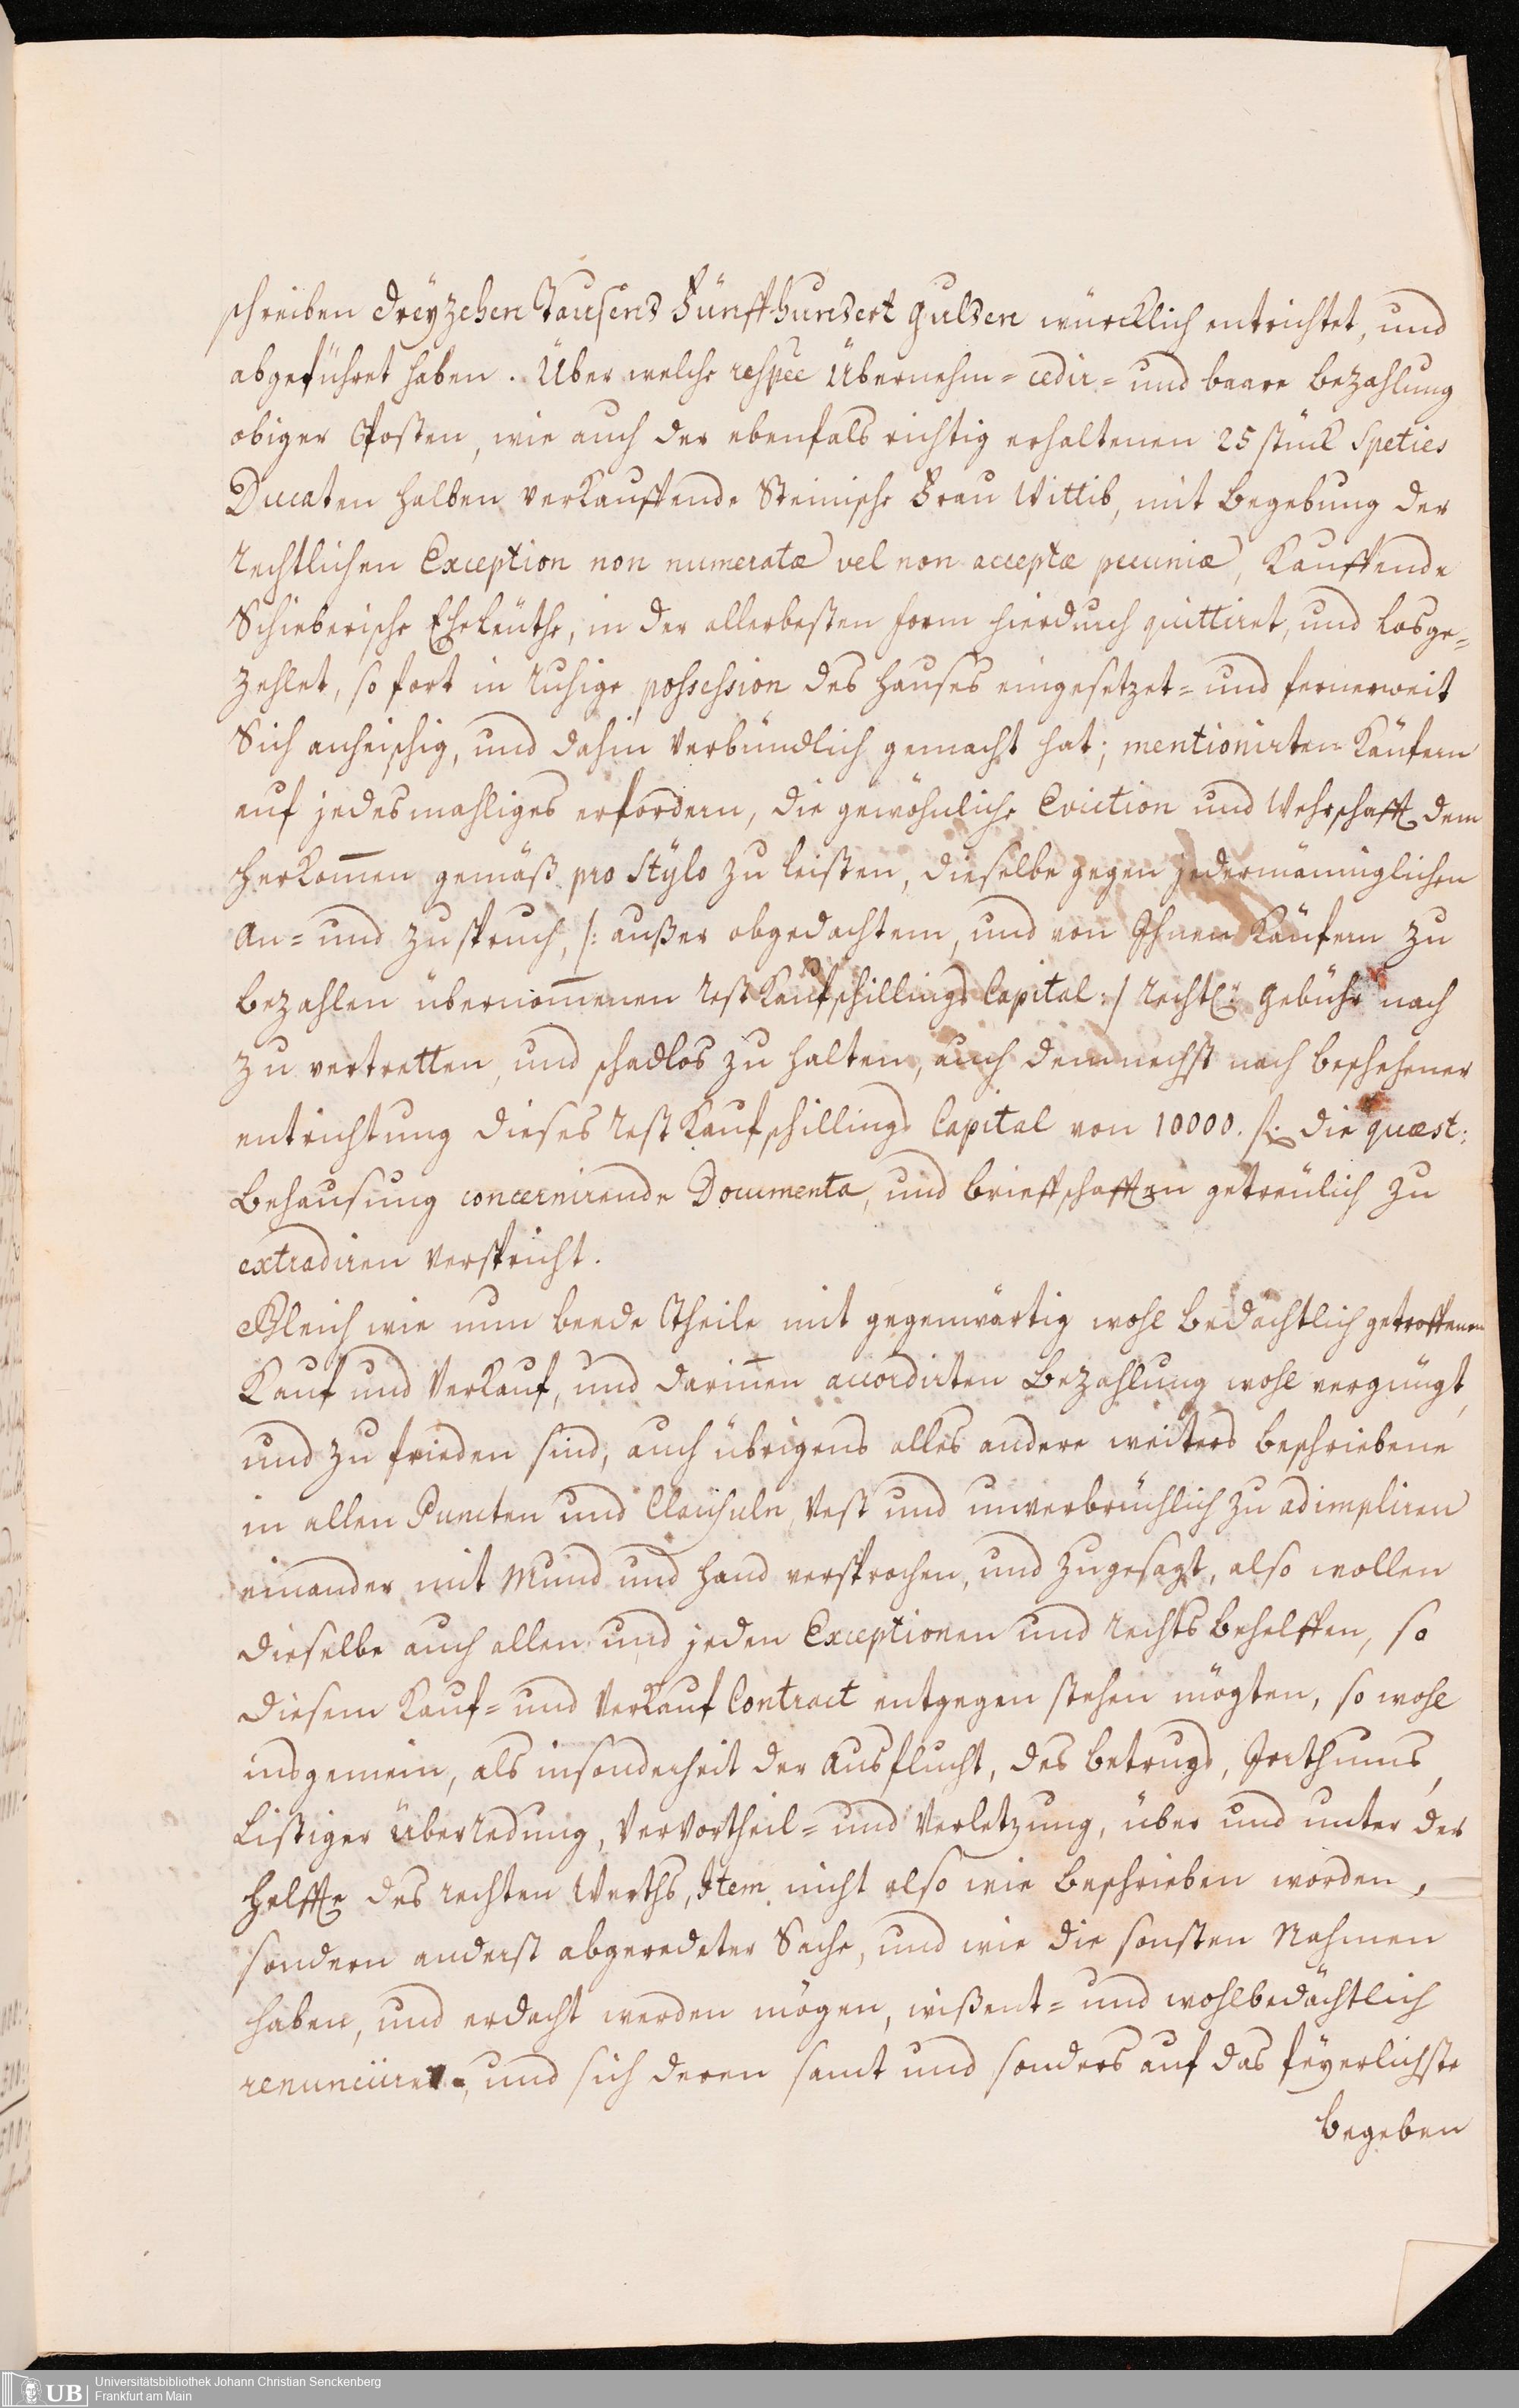 schreiben dreÿzehen Tausend Fünffhundert Gulden würcklich entrichtet, und
abgeführet haben. Über welche respêe Übernehm= cedir= und baare bezahlung
obiger Posten, wie auch der ebenfals richtig erhaltenen 25 stück Speties
Ducaten halben verkauffende Steinische Frau Wittib, mit begebung der
rechtlichen Exception non numeratæ vel non acceptæ pecuniæ, Kauffende
Schieberische Eheleuthe, in der allerbesten form hierdurch quittiret, und losge=
zehlet, so fort in ruhige possession des hauses eingesetzet= und fernerweit
Sich anheischig, und dahin verbündlich gemacht hat; mentionirten Käufern
auf jedesmahliges erfordern, die gewöhnliche Eviction und Wehrschafft dem
herkom̄en gemäß pro stylo zu leisten, dieselbe gegen jedermänniglichen
An= und zuspruch, /: außer obgedachtem, und von Ihnen Käufern zu
bezahlen übernom̄enen rest Kaufschillings Capital :/ rechtl: gebühr nach
zu vertretten, und schadlos zu halten, auch demnechst nach beschehener
entrichtung dieses rest Kaufschillings Capital von 10000. f. die quæst:
behausung concernirende Documenta, und brieffschafften getreülich zu
extradiren verspricht.
Gleich wie nun beede Theile mit gegenwärtig wohl bedächtlich getroffenen
Kauf und Verkauf, und darin̄en accordirten bezahlung wohl vergnügt,
und zu frieden sind, auch übrigens alles andere weiters beschriebene
in allen Puncten und Clausuln, vest und unverbrüchlich zu adimpliren
einander mit Mund und hand versprochen, und zugesagt, also wollen
dieselbe auch allen und jeden Exceptionen und rechts behelffen, so
diesem Kauf= und Verkauf Contract entgegen stehen mögten, so wohl
ins gemein, als insonderheit der Ausflucht, des betrugs, Irrthums,
listiger Überredung, Vervortheil= und Verletzung, über und unter der
helffte des rechten Werths, Item nicht also wie beschrieben worden,
sondern anderst abgeredeter Sache, und wie die sonsten Nahmen
haben, und erdacht werden mögen, wißent= und wohlbedächtlich
renunciiret=, und sich deren samt und sonders auf das feÿerlichste
begeben
UB
Universitätsbibliothek Johann Christian Senckenberg
Frankfurt am Main